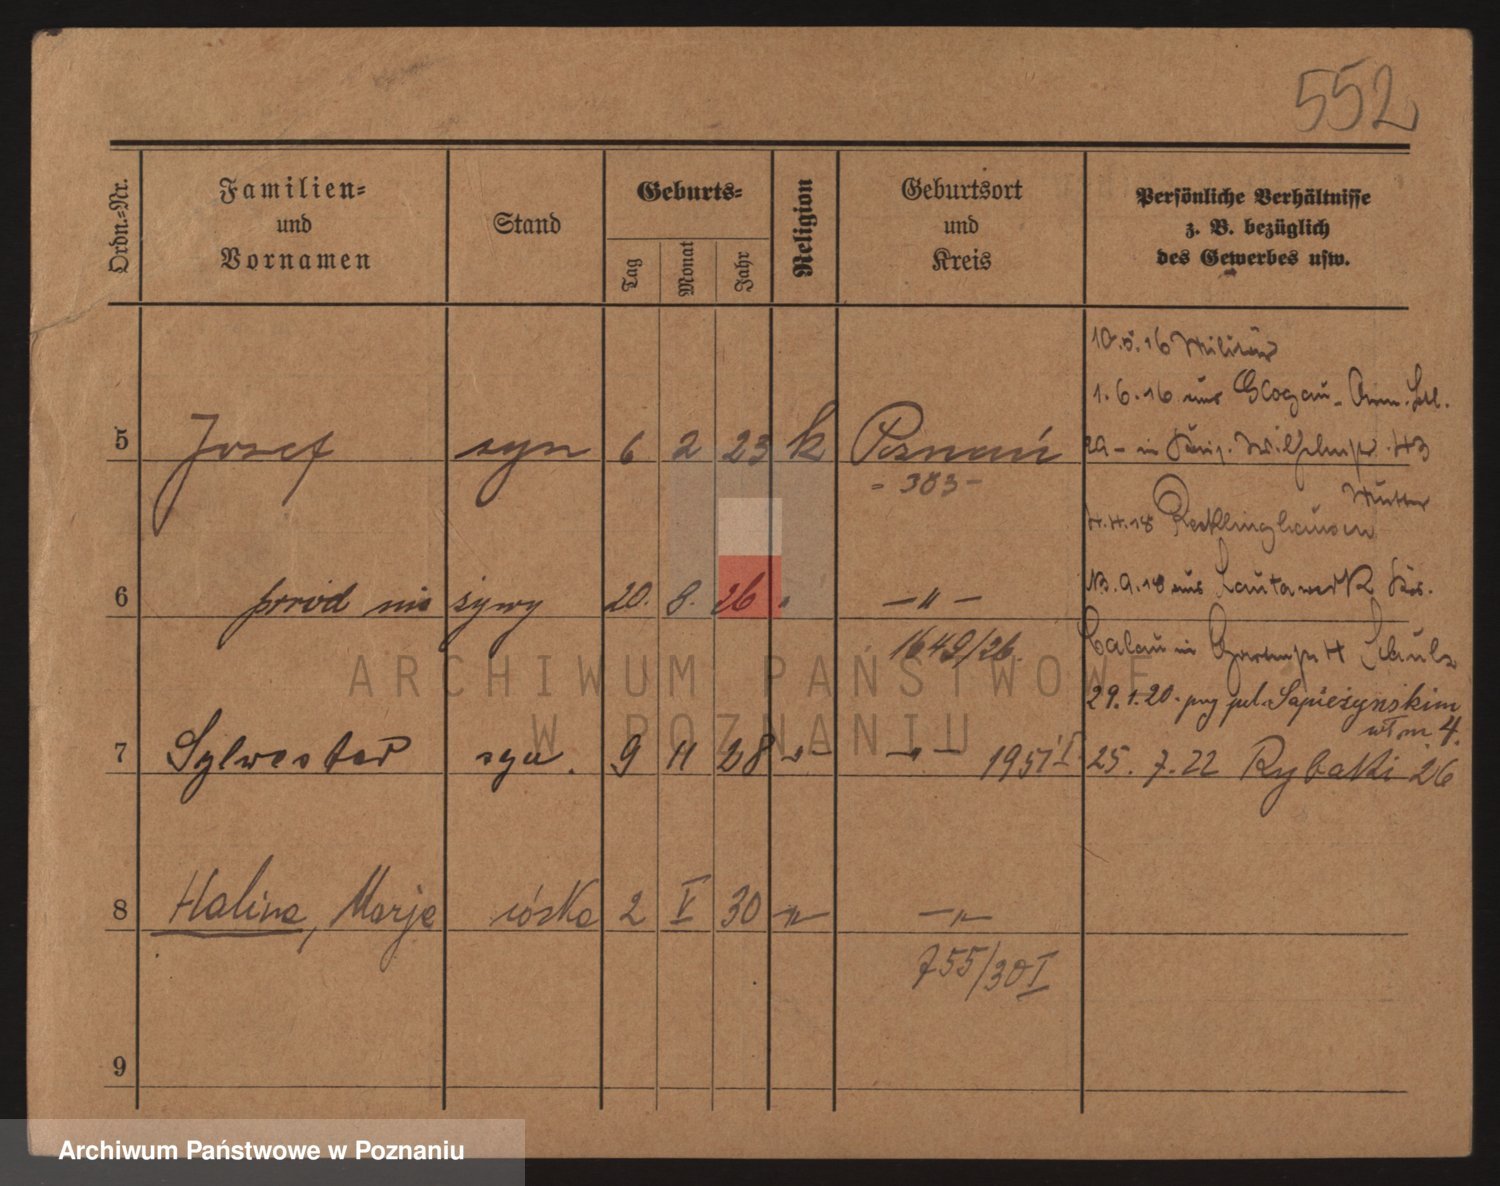 552
Ordn.=Nr.
Familien=
und
Vornamen
Stand
Geburts=
Tag
Monat
Jahr
Religion
Geburtsort
und
Kreis
Persönliche Verhältnisse
z. B. bezüglich
des Gewerbes usw.
10.5.16 Militär
1.6.16 aus Glogau
5 Josef syn 6 2 23 k Poznań
- 383 -
Mutter
Recklinghausen
6 poród nie żywy 20. 8. 26 " — " —
13.9.18 aus Lautawerk
1649/26
Calau in Gartenstr. 4 Schulz
29.1.20. prz. pl. Sapieżyńskim
m 4.
7 Sylwester syn. 9 11 28 - " - - " - 1951 I 25. 7. 22 Rybaki 26
8 Halina, Marja córka 2 V 30 - " - - " -
755/30 I
9
ARCHIWUM PAŃSTWOWE
W POZNANIU
Archiwum Państwowe w Poznaniu